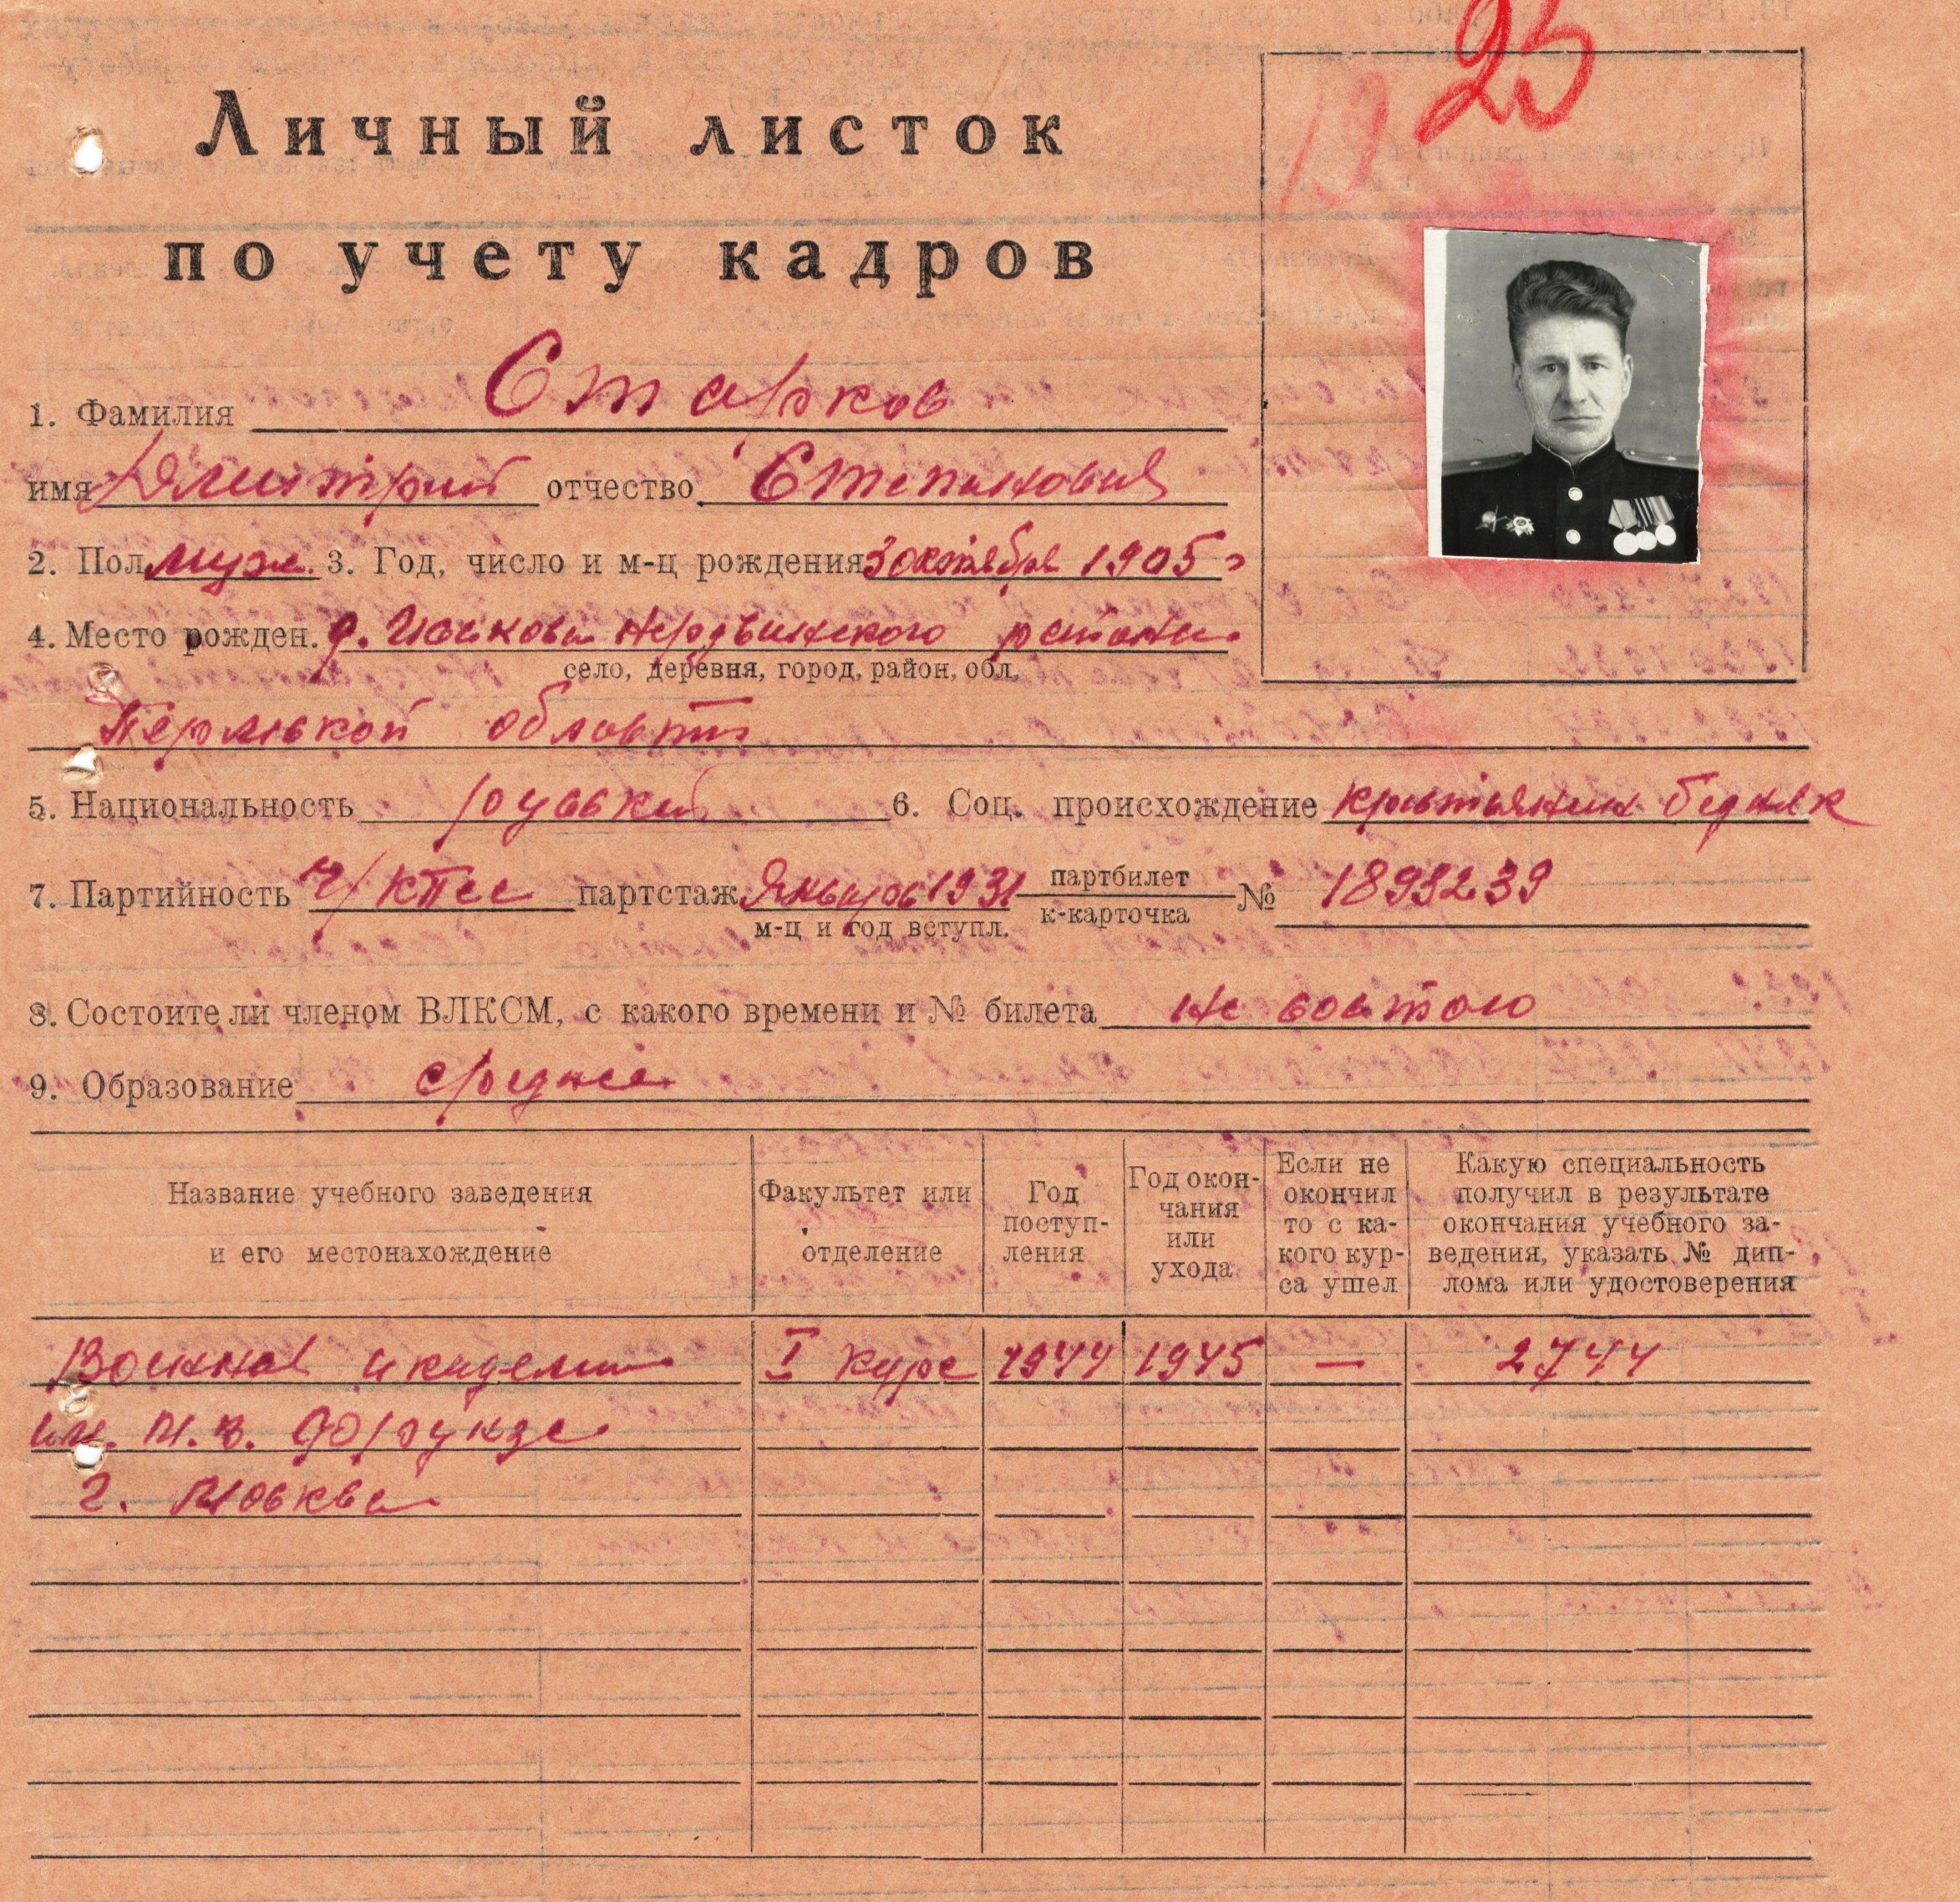 25
Личный листок
по учету кадров
1. Фамилия Старков
имя Дмитрий отчество Степанович
2. Пол муж. 3. Год, число и м-ц рождения 3 октября 1905 г
4. Место рожден. д. Нердвинского района
село, деревня, город, район, обл.
Пермской области
5. Национальность русский 6. Соц. происхождение крестьянин бедняк
7. Партийность ч/КПСС партстаж Январь 1931 партбилет № 1893239
м-ц и год вступл. к-карточка
8. Состоите ли членом ВЛКСМ, с какого времени и № билета не состою
9. Образование среднее
Название учебного заведения и его местонахождение
Факультет или отделение
Год поступ-ления
Год окон-чания или ухода
Если не окончил то с ка-кого кур-са ушел
Какую специальность получил в результате окончания учебного за-ведения, указать № дип-лома или удостоверения
Военная академия I курс 1944 1945 — 2744
им. М.В. Фрунзе
г. Москва